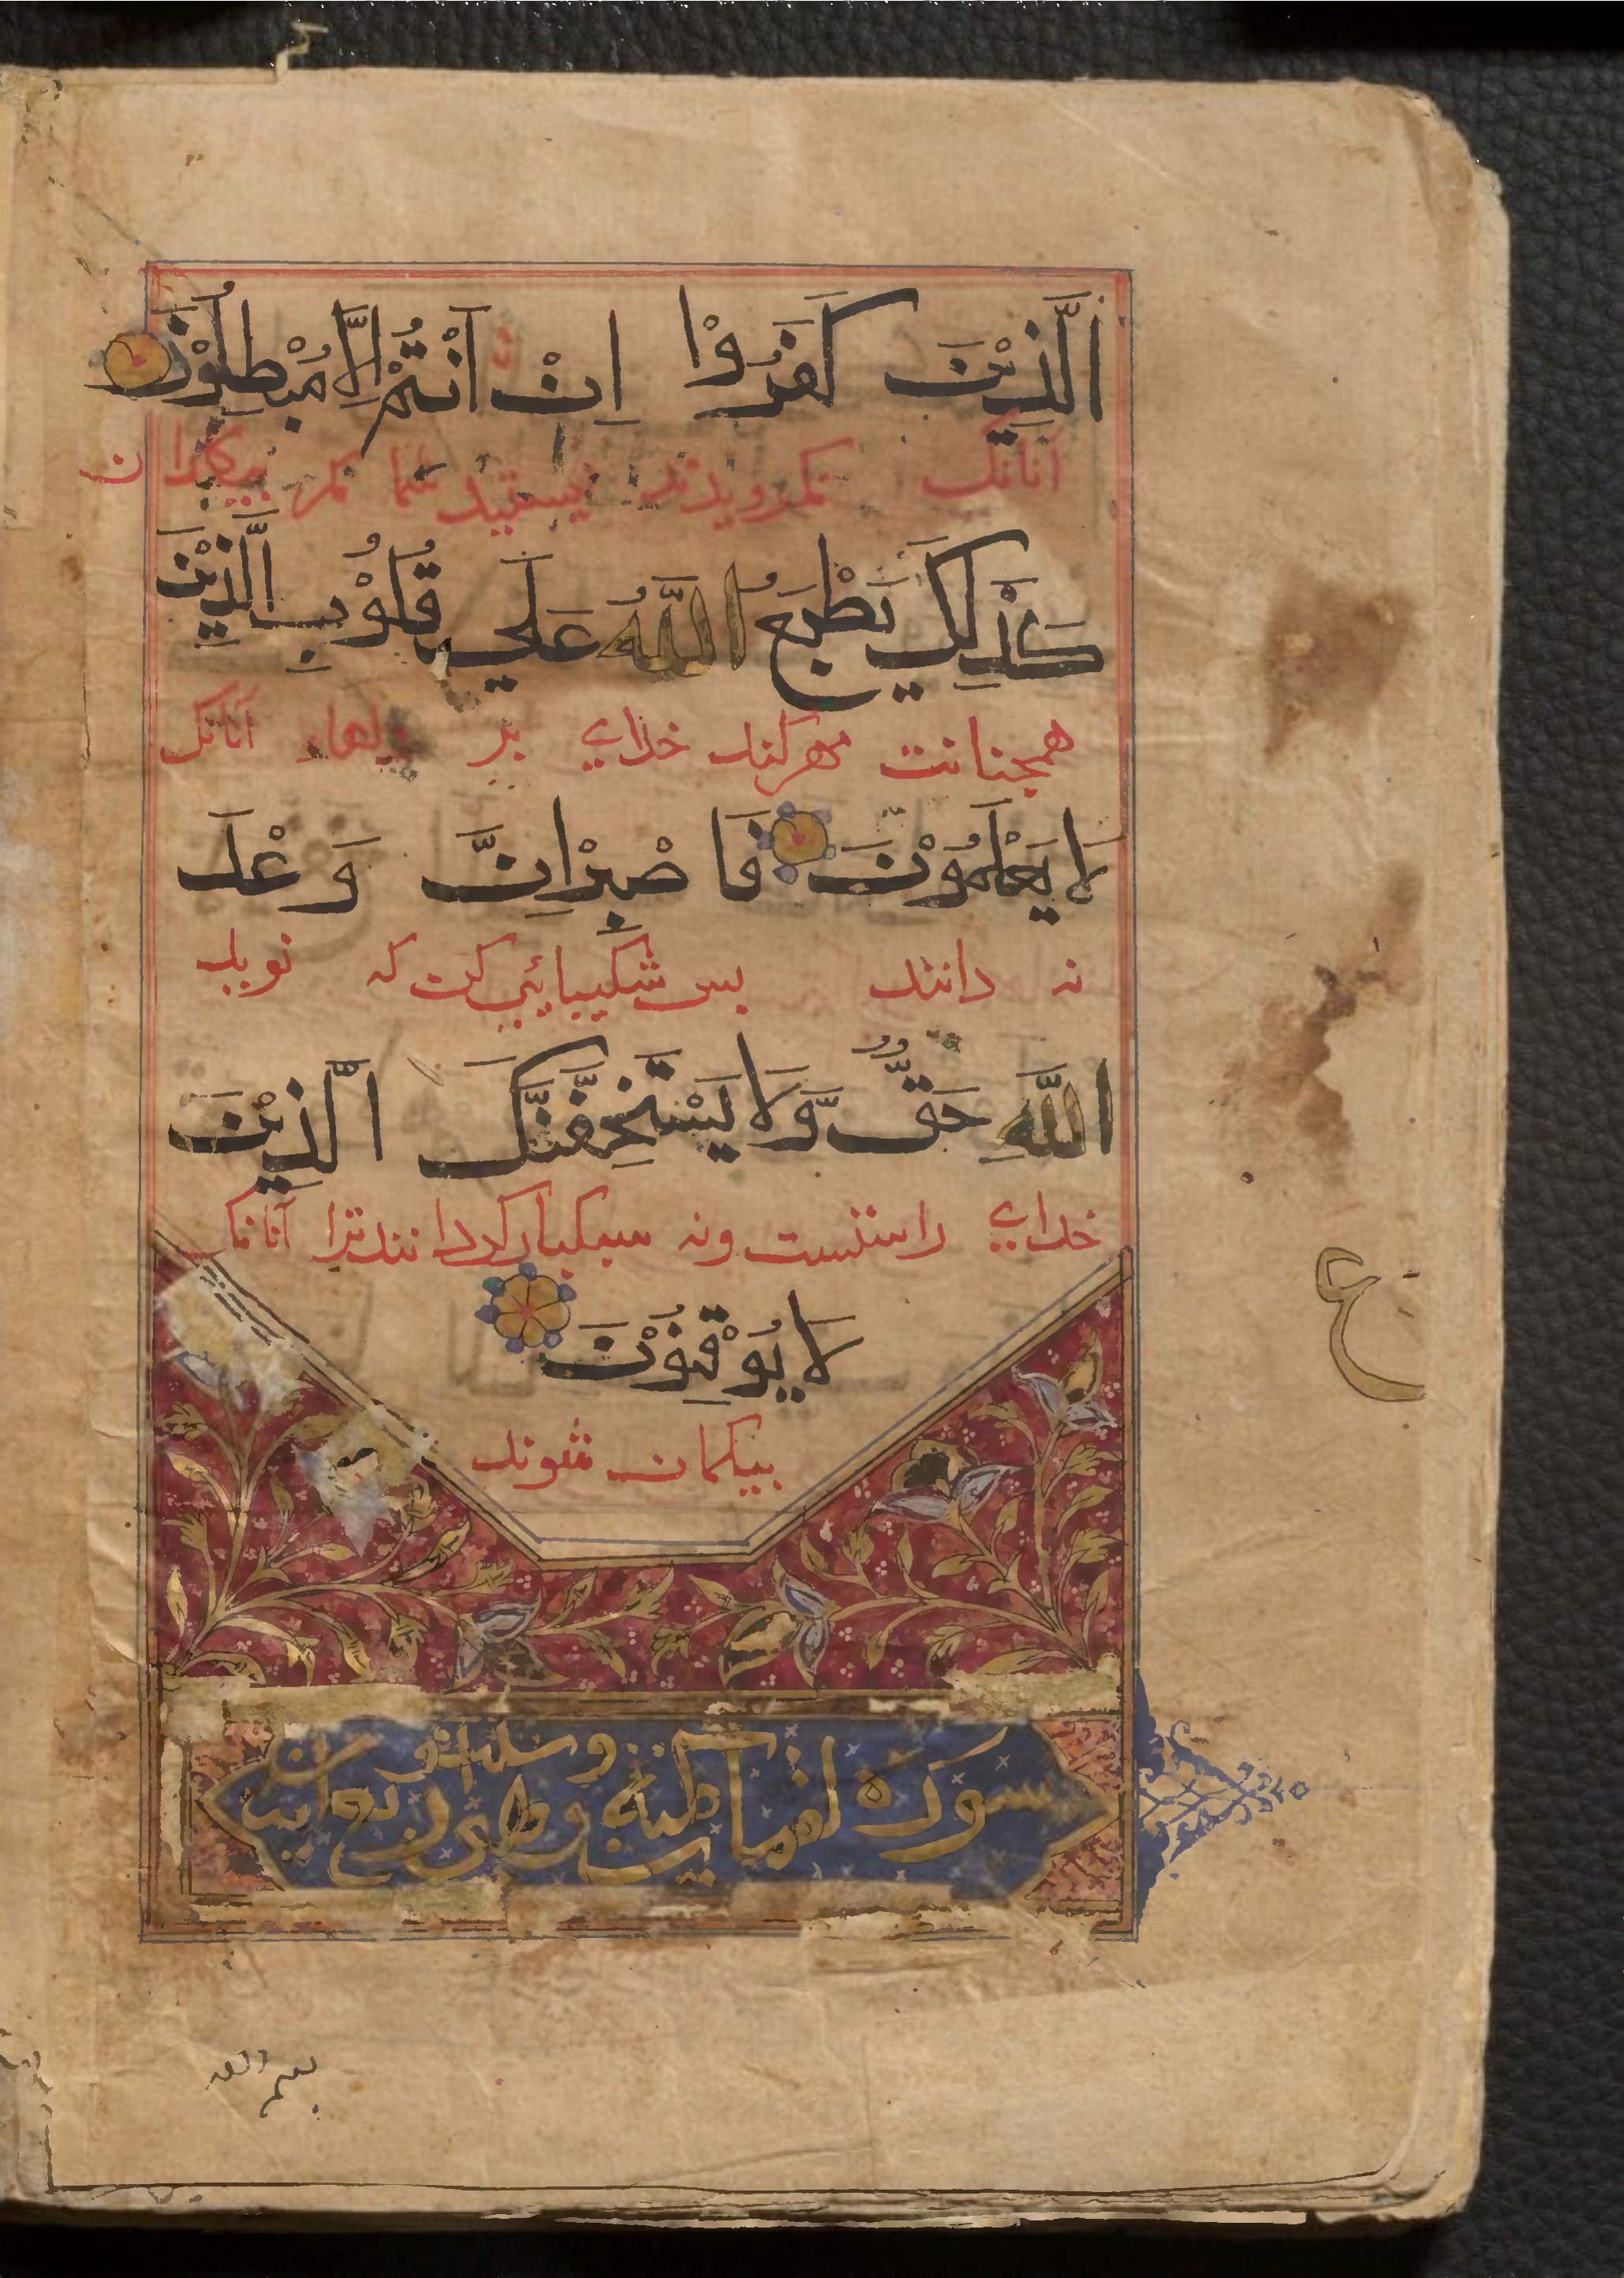 الَّذِيْنَ كَفَرُوْا اِنْ اَنْتُمْ اِلَّا مُبْطِلُوْنَ
آنانک نکرویدند نیستید شما مکر
كَذٰلِكَ يَطْبَعُ اللّٰهُ عَلٰي قُلُوْبِ الَّذِيْنَ
همجنانت مهر کند خدای بر دلهاء آنانک
لَا يَعْلَمُوْنَ فَاصْبِرْ اِنَّ وَعْدَ
نه دانند بس شکیبایی کن که نوید
اللّٰهِ حَقٌّ وَّلَا يَسْتَخِفَّنَّكَ الَّذِيْنَ
خدای راستست ونه سبکبار کردانند ترا آنانک
لَا يُوْقِنُوْنَ
بیکمان شوند
سورة لقمان
ع
بسم الله